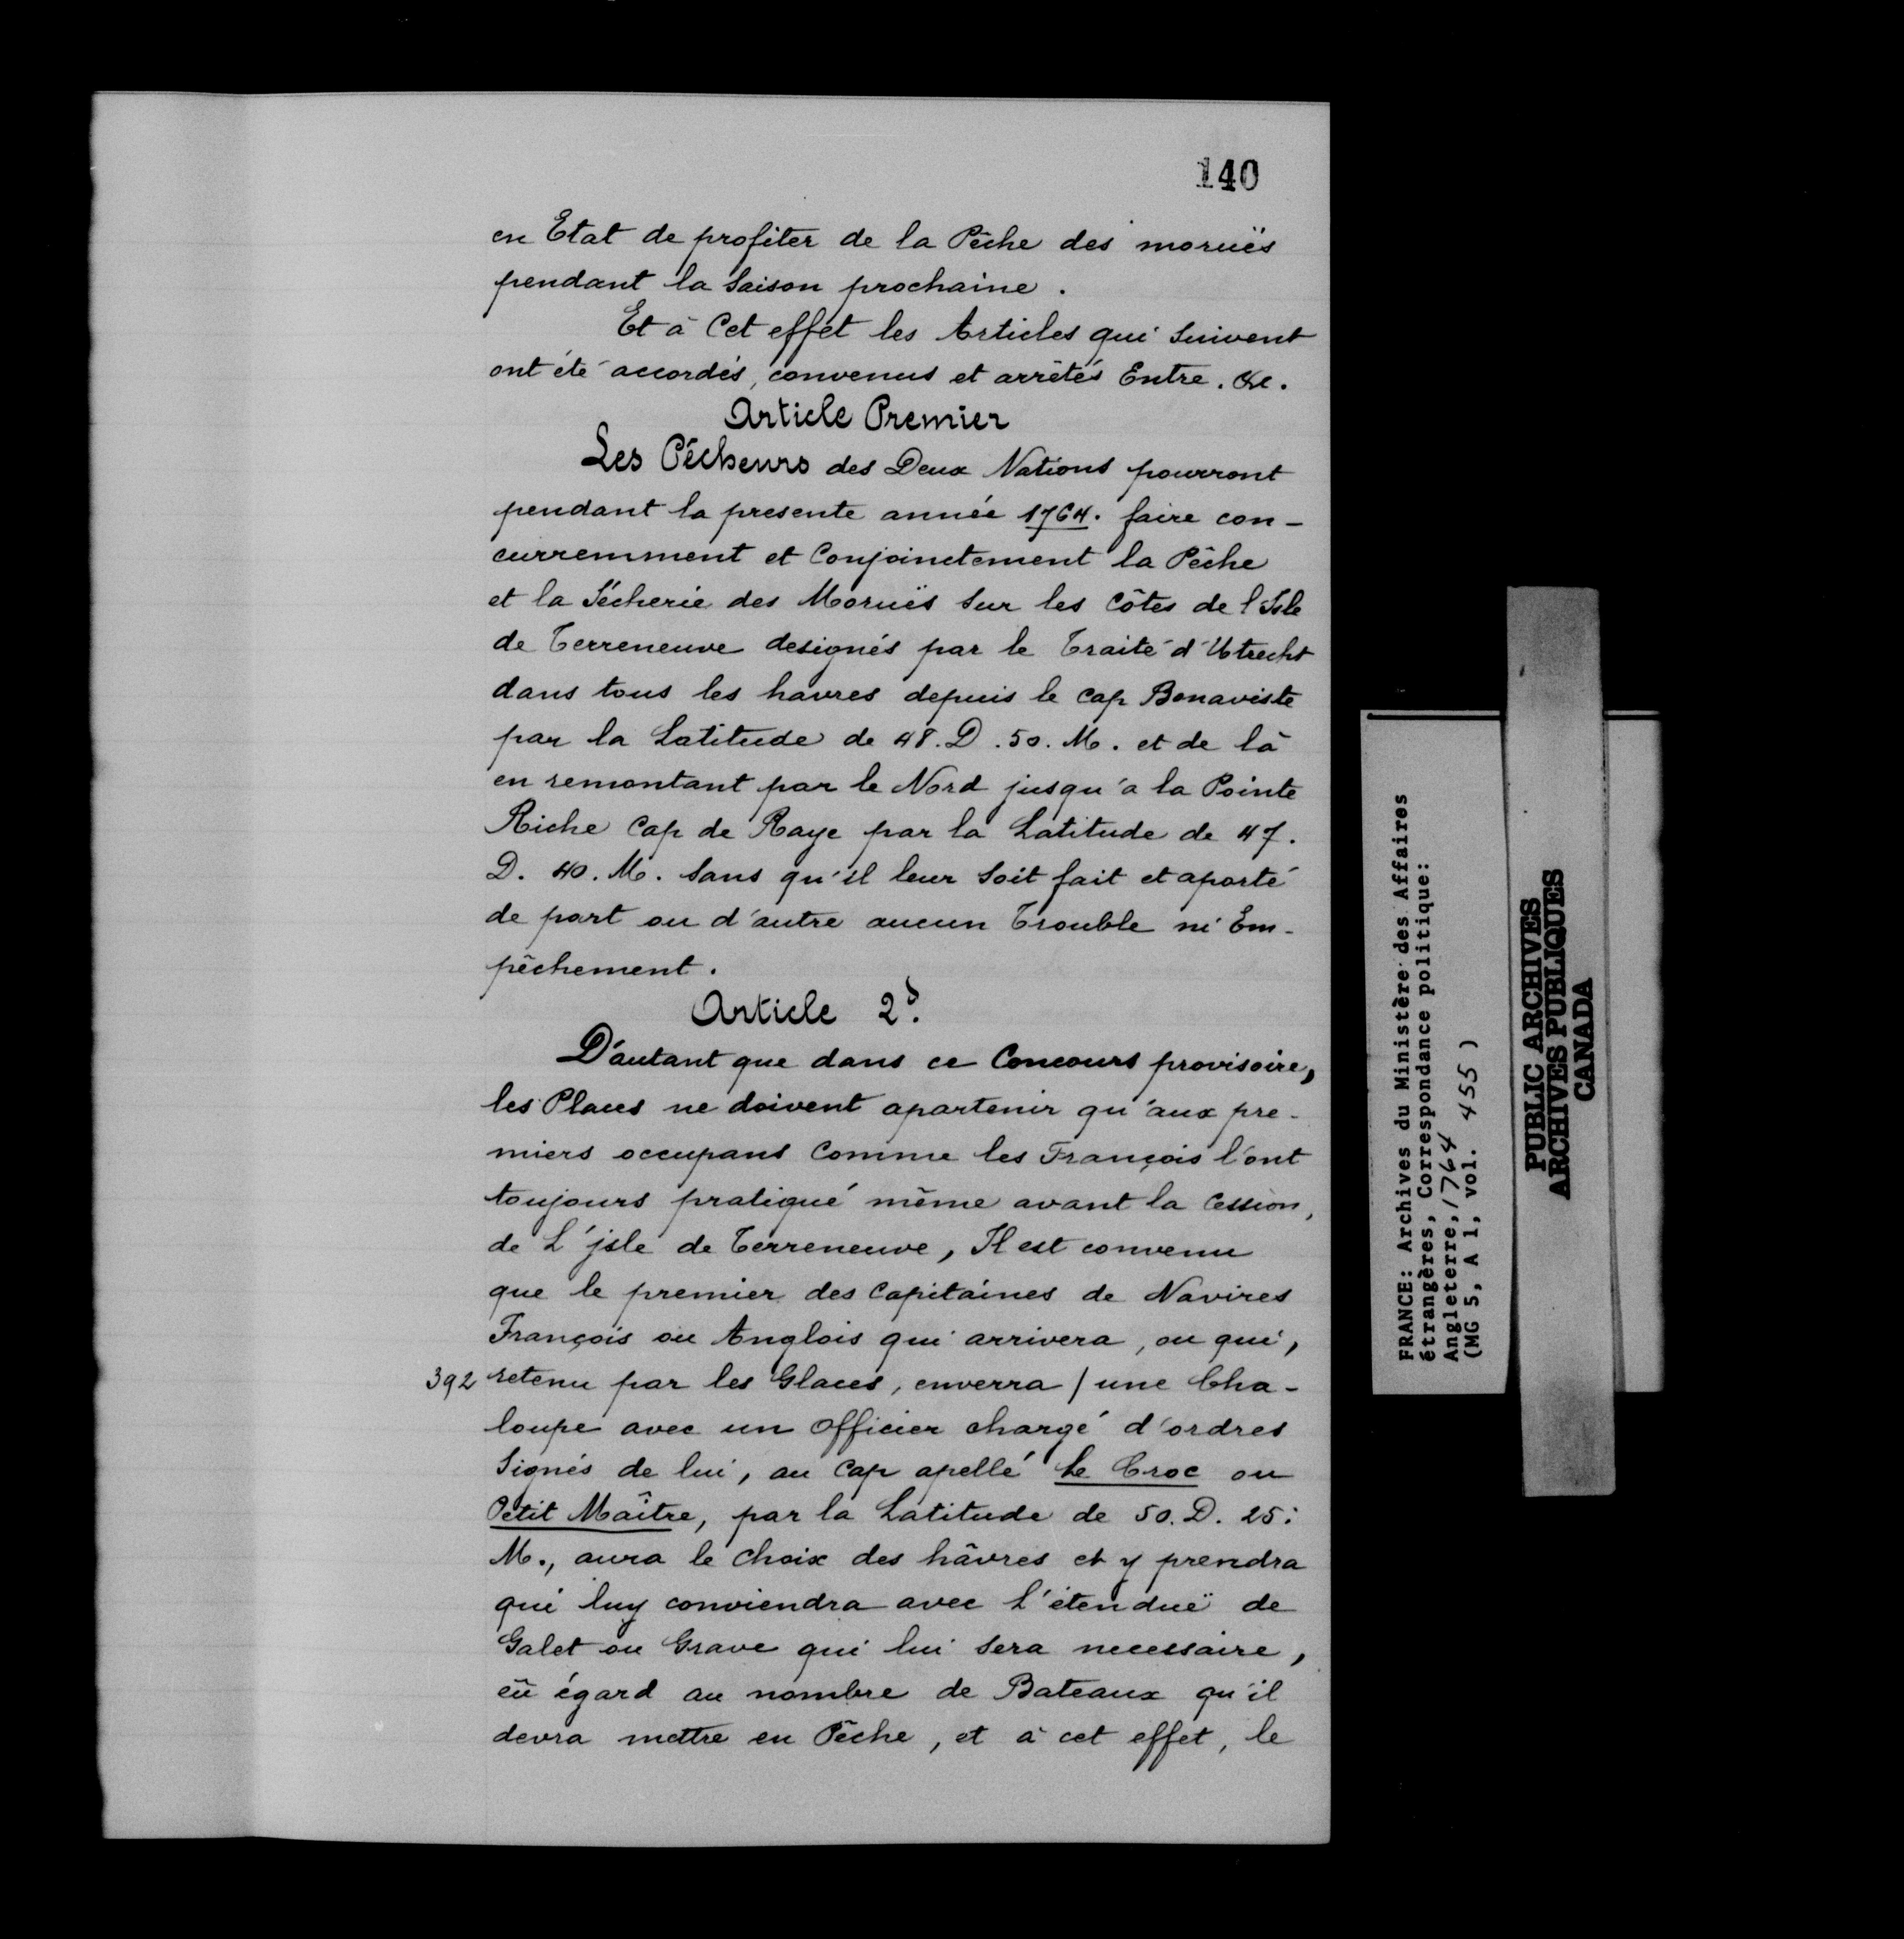 140
en Etat de profiter de la Pêche des moruës
pendant la Saison prochaine.
Et à Cet effet les Articles qui Suivent
ont été accordés, convenus et arrêtés Entre. &c.
Article Premier
Les Pêcheurs des Deux Nations pourront
pendant la presente année 1764. faire con-
curremment et Conjoinctement la Pêche
et la Sécherie des Moruës Sur les Côtes de l'Isle
de Terreneuve designés par le Traité d'Utrecht
dans tous les havres depuis le Cap Bonaviste
par la Latitude de 48. D. 50. M. et de là
en remontant par le Nord jusqu'a la Pointe
Riche Cap de Raye par la Latitude de 47.
D. 40. M. Sans qu'il leur Soit fait et aporté
de part ou d'autre aucun Trouble ni Em-
pêchement.
Article 2d.
D'autant que dans ce Concours provisoire,
les Places ne doivent apartenir qu'aux pre-
miers occupans Comme les François l'ont
toujours pratiqué même avant la Cession,
de L'jsle de Terreneuve, Il est convenu
que le premier des Capitaines de Navires
François ou Anglois qui arrivera, ou qui,
392 retenu par les Glaces, enverra / une Cha-
loupe avec un Officier chargé d'ordres
Signés de lui, au Cap apellé Le Croc ou
Petit Maître, par la Latitude de 50. D. 25:
M., aura le Choix des hâvres et y prendra
qui luy conviendra avec l'étenduë de
Galet ou Grave qui lui Sera necessaire,
eû égard au nombre de Bateaux qu'il
devra mettre en Pêche, et à cet effet, le
FRANCE: Archives du Ministère des Affaires
étrangères, Correspondance politique:
Angleterre, 1764
(MG 5, A 1, vol. 455)
PUBLIC ARCHIVES
ARCHIVES PUBLIQUES
CANADA